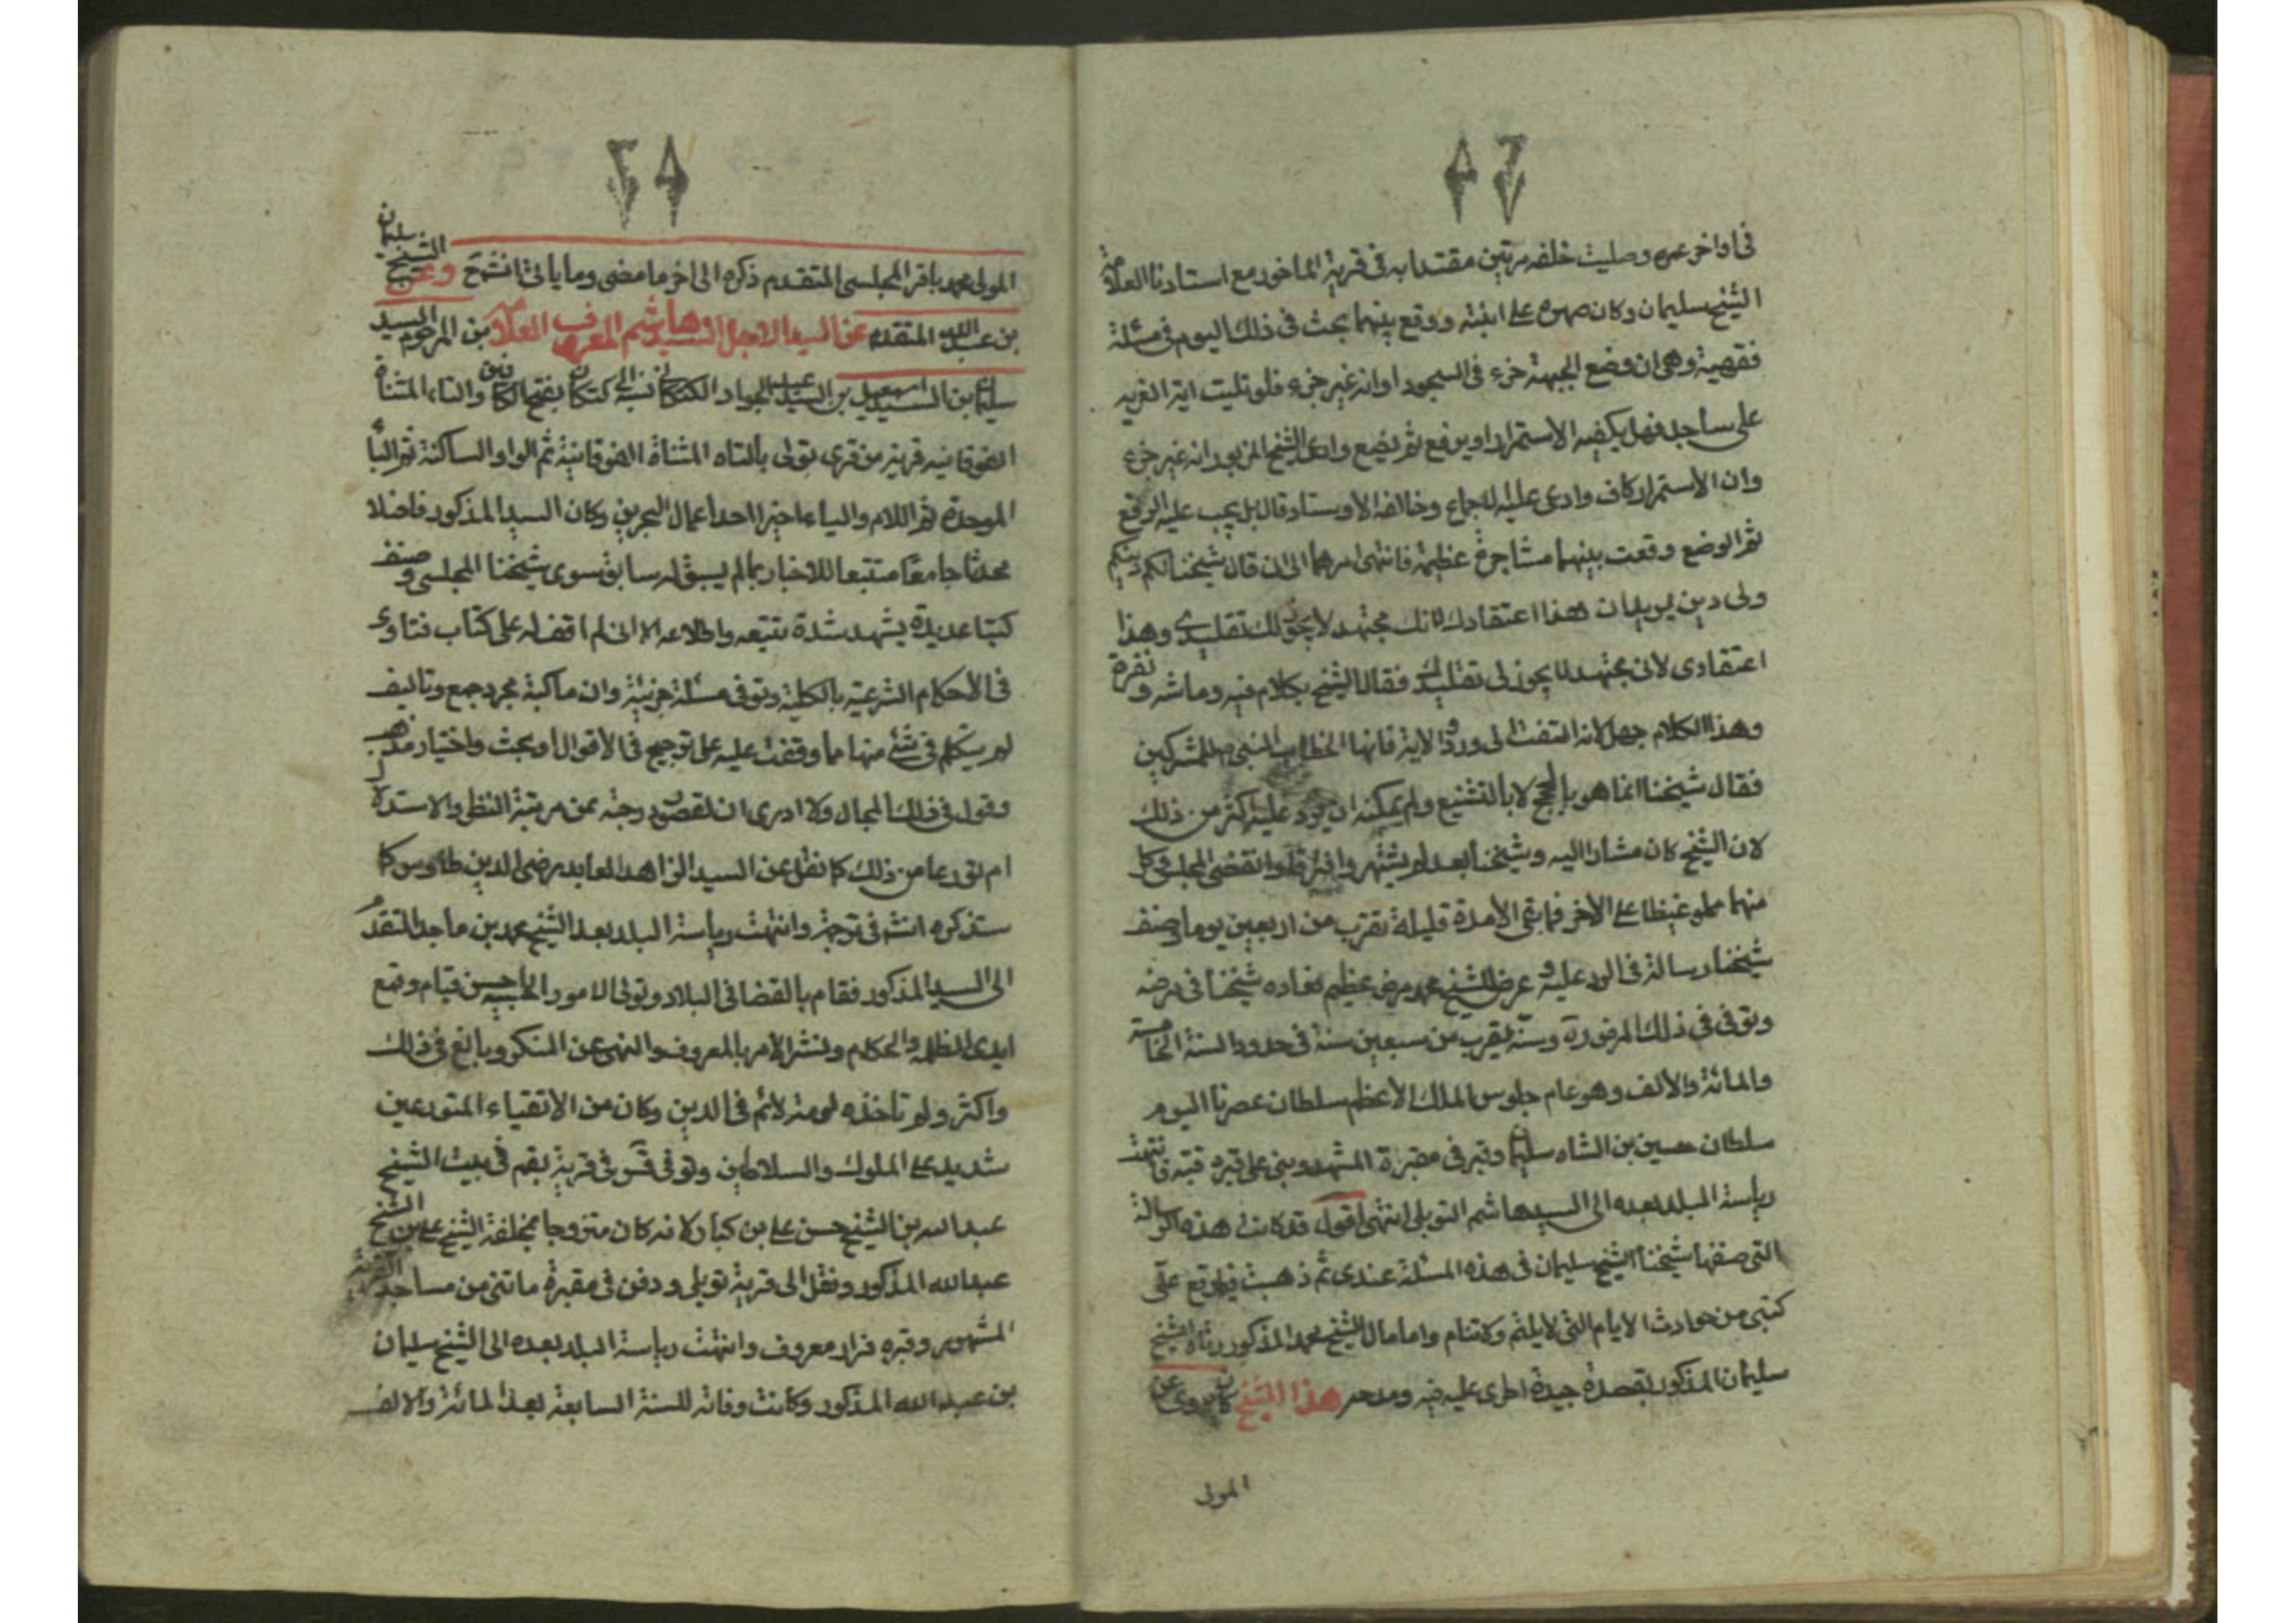 في اواخر عمره وصليت خلفه مرتين مقتديا به في قرية الماخور مع استادنا العلامة
الشيخ سليمان وكان صهره على ابنته ووقع بينهما بحث في ذلك اليوم في مسئلة
فقهية وهي ان وضع الجبهة جزء في السجود او انه غير جزء فلو تليت اية العزيمة
على ساجد فهل يكفيه الاستمرار او يرفع ثم يضع وادعى الشيخ المزبور انه غير جزء
وان الاستمرار كاف وادعى عليه الاجماع وخالفه الاوستاد قال بل يجب عليه الرفع
ثم الوضع وقعت بينهما مشاجرة عظيمة فانتهى امرهما الى ان قال شيخنا لكم دينكم
ولى دين يريد ان هذا اعتقادك لانك مجتهد لا يجوز لك تقليدى وهذا
اعتقادى لانى مجتهد لا يجوز لى تقليدك فقال الشيخ بكلام فيه وماشه ونفرة
وهذا الكلام جهل لانه التفت الى ورود الاية فانها الخطاب النبي للمشركين
فقال شيخنا انما هو بالحجج لا بالتشنيع ولم يمكنه ان يرد عليه اكثر من ذلك
لان الشيخ كان مشارا اليه وشيخنا بعد لم يشتهر وافترقا وانقضى المجلس وكل
منهما مملو غيظا على الاخر فما بقى الا مدة قليلة تقرب من اربعين يوما وصنف
شيخنا رسالة في الرد عليه وعرض للشيخ محمد مرض عظيم فعاده شيخنا في مرضه
وتوفى في ذلك المرض وسنه يقرب من سبعين سنة في حدود السنة الخامسة
والمائة والالف وهو عام جلوس الملك الاعظم سلطان عصرنا اليوم
سلطان حسين بن الشاه سليمان وقبر في مقبرة المشهد وبنى على قبره قبة وانتهت
رياسة البلد بعده الى السيد هاشم التوبلي انتهى اقول قد كانت هذه الرسالة
التى صنفها شيخنا الشيخ سليمان في هذه المسئلة عندى ثم ذهبت فيما وقع على
كتبى من حوادث الايام التى لا تنيم ولا تنام ولما مات الشيخ محمد المذكور رثاه الشيخ
سليمان المذكور بقصدة جيدة اطرى عليه فيه ومدحه هذا الشيخ كان يروى عن
المولى
٢٨
المولى محمد باقر المجلسى المتقدم ذكره الى اخر ما مضى وما ياتى انشه تع وعن الشيخ سليمان
بن عبد الله المتقدم عن السيد الاجل السيد هاشم المعروف العلامة بن المرحوم السيد
سليمان بن السيد اسمعيل بن السيد عبد الجواد الكتكانى نسبة الى كتكان بفتح الكافين والتاء المثناة
الفوقانيه قرية من قرى توبلى بالتاء المثناة الفوقانية ثم الواو الساكنة ثم الباء
الموحدة ثم اللام والياء اخيرا احد اعمال البحرين وكان السيد المذكور فاضلا
محدثا جامعا متتبعا للاخبار بما لم يسبق له سابق سوى شيخنا المجلسى وصنف
كتبا عديدة يشهد شدة تتبعه واطلاعه الا انى لم اقف له على كتاب فتاوى
في الاحكام الشرعية بالكلية ولو في مسئلة جزئية وان ما كتبه مجرد جمع وتاليف
لم يتكلم في شئ منها مما وقفت عليه على ترجيح في الاقوال او بحث واختيار مذهب
وقول في ذلك المجال ولا ادرى ان لقصور درجته عن مرتبة النظر والاستدلال
ام تورعا من ذلك كما نقل عن السيد الزاهد العابد رضى الدين طاوس كما
ستذكره انشه في ترجمة وانتهت رياسة البلد بعد الشيخ محمد بن ماجد المتقدم
الى السيد المذكور فقام بالقضا في البلاد وتولى الامور الحسبيه احسن قيام وقمع
ايدى الظلمه والحكام ونشر الامر بالمعروف والنهى عن المنكر وبالغ في ذلك
واكثر ولم تاخذه لومة لائم في الدين وكان من الاتقياء المتورعين
شديد على الملوك والسلاطين وتوفى في قرية نعيم في بيت الشيخ
عبد الله بن الشيخ حسن على بن كنبار لانه كان متزوجا بمخلفة الشيخ على بن الشيخ
عبد الله المذكور ونقل الى قرية توبلى ودفن في مقبرة ماتنى من مساجد القرية
المشهور وقبره مزار معروف وانتهت رياسة البلد بعده الى الشيخ سليمان
بن عبد الله المذكور وكانت وفاته للسنة السابعة بعد المائة والالف